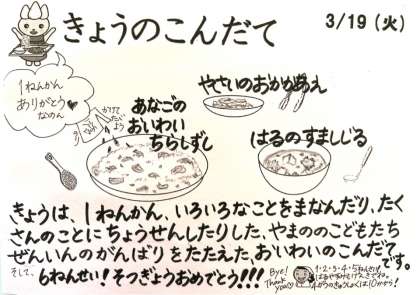 きょうのこんだて
3/19(火)
1ねんかん
ありがとう♥
なのん
やさいのおかかあえ
あなごの
おいわい
ちらしずし
はるのすましじる
かけて
たべ
よう
きょうは、1ねんかん、いろいろなことをまなんだり、たく
さんのことにちょうせんしたりした、やまののこどもたち
ぜんいんのがんばりをたたえた、おいわいのこんだて
です。
そして、
6ねんせい!そつぎょうおめでとう!!!
Bye!
Thank
you♡
1・2・3・4・5ねんせい!